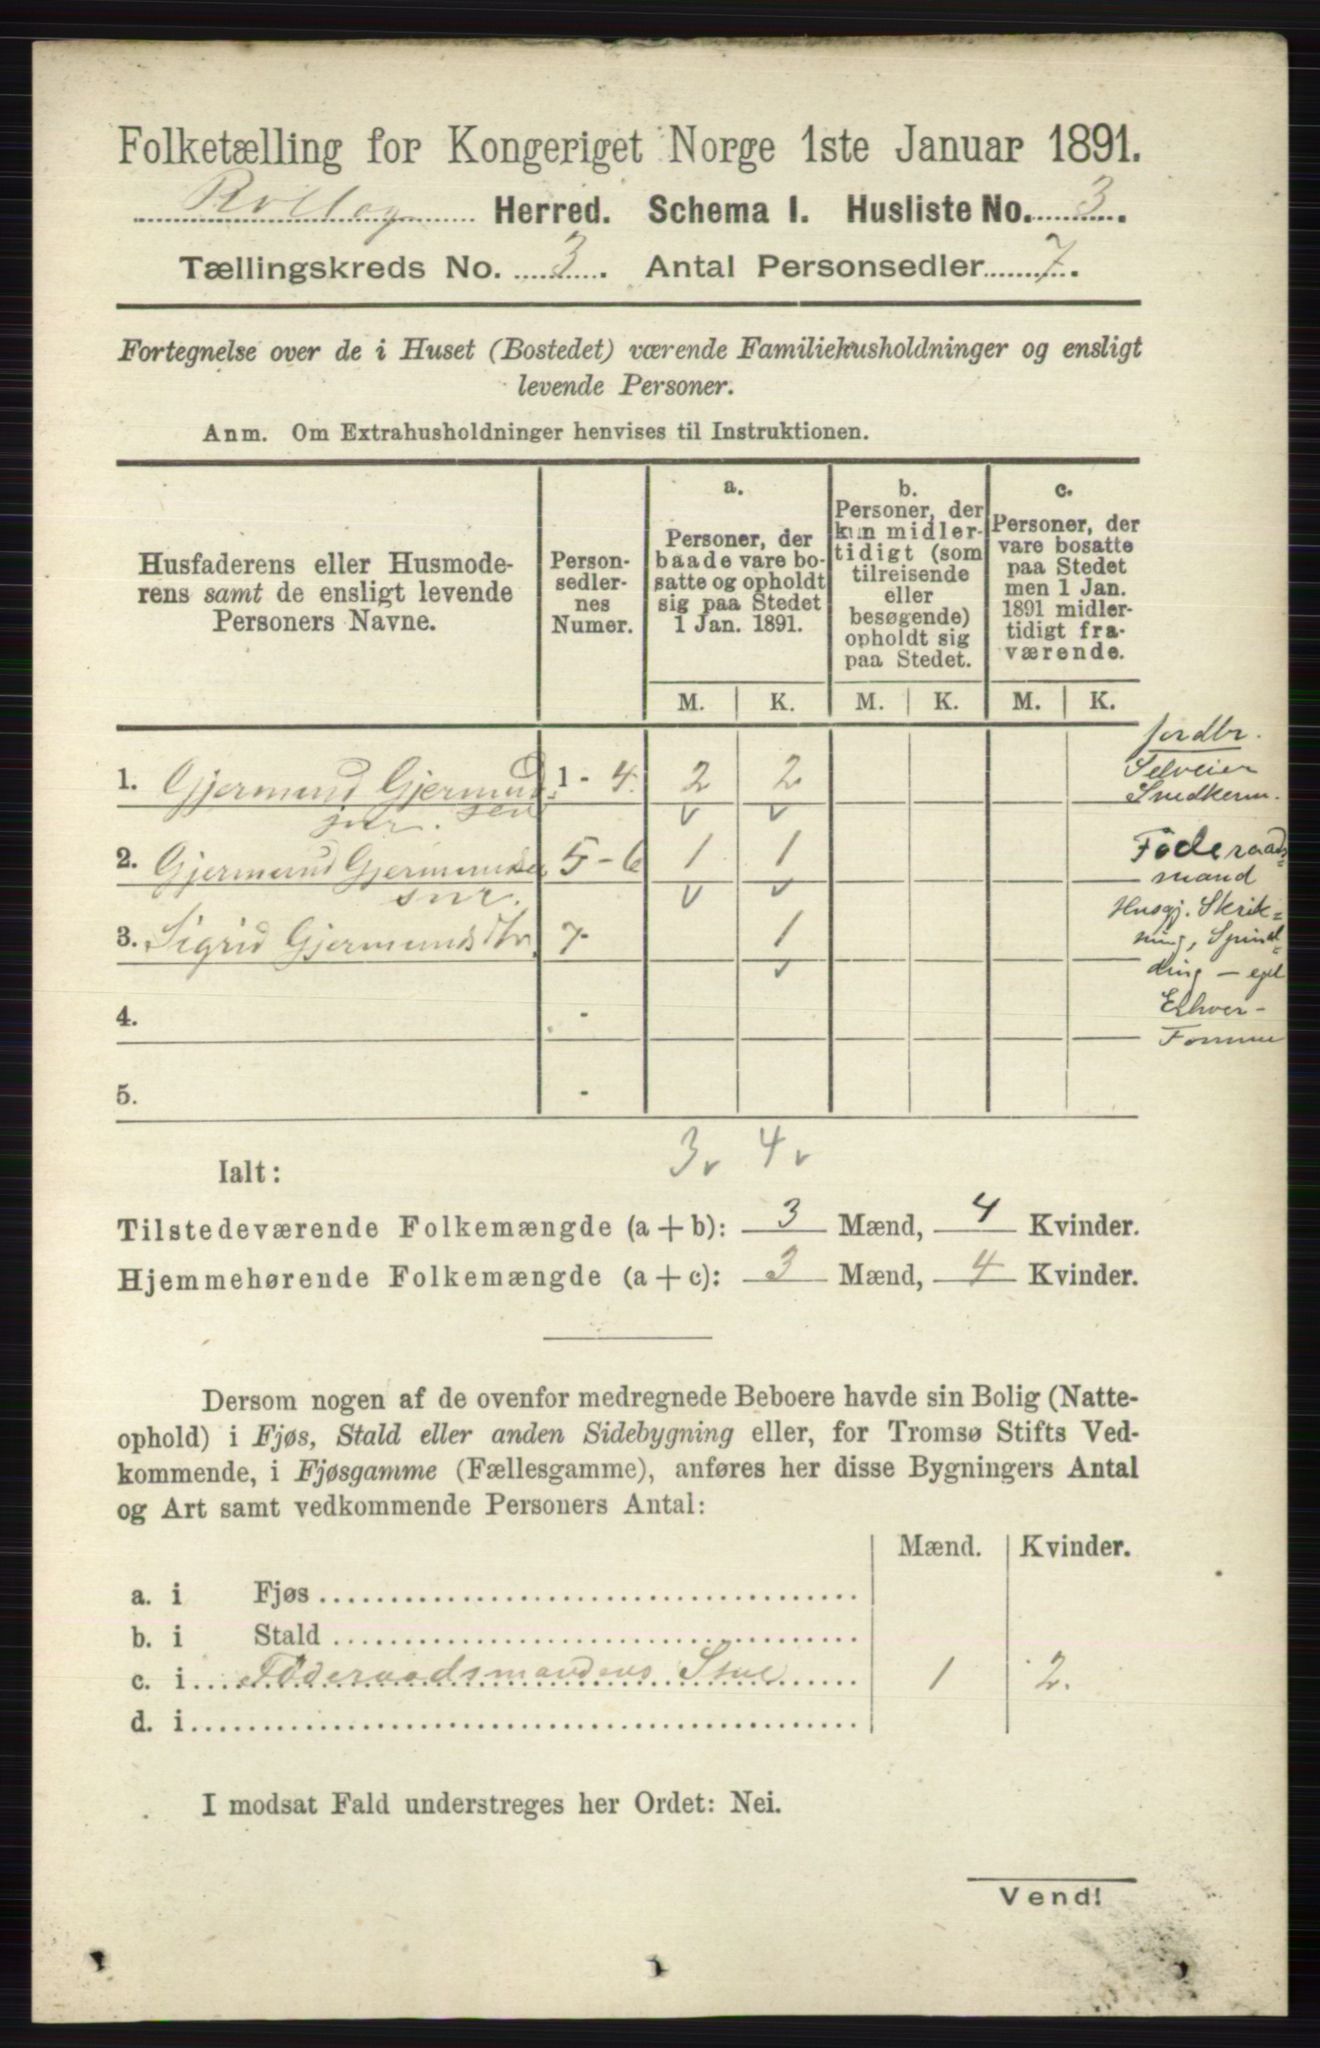 Folketælling for Kongeriget Norge 1ste Januar 1891.
Rollag Herred. Schema I. Husliste No. 3.
Tællingskreds No. 3. Antal Personsedler 7.
Fortegnelse over de i Huset (Bostedet) værende Familiehusholdninger og ensligt
levende Personer.
Anm. Om Extrahusholdninger henvises til Instruktionen.
Husfaderens eller Husmode-
rens samt de ensligt levende
Personers Navne.
Person-
sedler-
nes
Numer.
a.
Personer, der
baade vare bo-
satte og opholdt
sig paa Stedet
1 Jan. 1891.
b.
Personer, der
kun midler-
tidigt (som
tilreisende
eller
besøgende)
opholdt sig
paa Stedet.
c.
Personer, der
vare bosatte
paa Stedet
men 1 Jan.
1891 midler-
tidigt fra-
værende.
M. K. M. K. M. K.
1. Gjermund Gjermund 1 - 4. 2 2
jnr. sen
2. Gjermund Gjermundsen 5 - 6 1 1
snr.
3. Sigrid Gjermundsdtr. 7 - 1
4. -
5. -
jordbr.
Selveier
Snedkerm.
Föderaads
mand
Husgj. Strik=
ning, Spind=
ding -
3 v 4 v
Ialt:
Tilstedeværende Folkemængde (a + b): 3 Mænd, 4 Kvinder.
Hjemmehørende Folkemængde (a + c): 3 Mænd, 4 Kvinder.
Dersom nogen af de ovenfor medregnede Beboere havde sin Bolig (Natte-
ophold) i Fjøs, Stald eller anden Sidebygning eller, for Tromsø Stifts Ved-
kommende, i Fjøsgamme (Fællesgamme), anføres her disse Bygningers Antal
og Art samt vedkommende Personers Antal:
Mænd. Kvinder.
a. i Fjøs
b. i Stald
c. i Föderaadsmandens Stue 1 2.
d. i
I modsat Fald understreges her Ordet: Nei.
Vend!